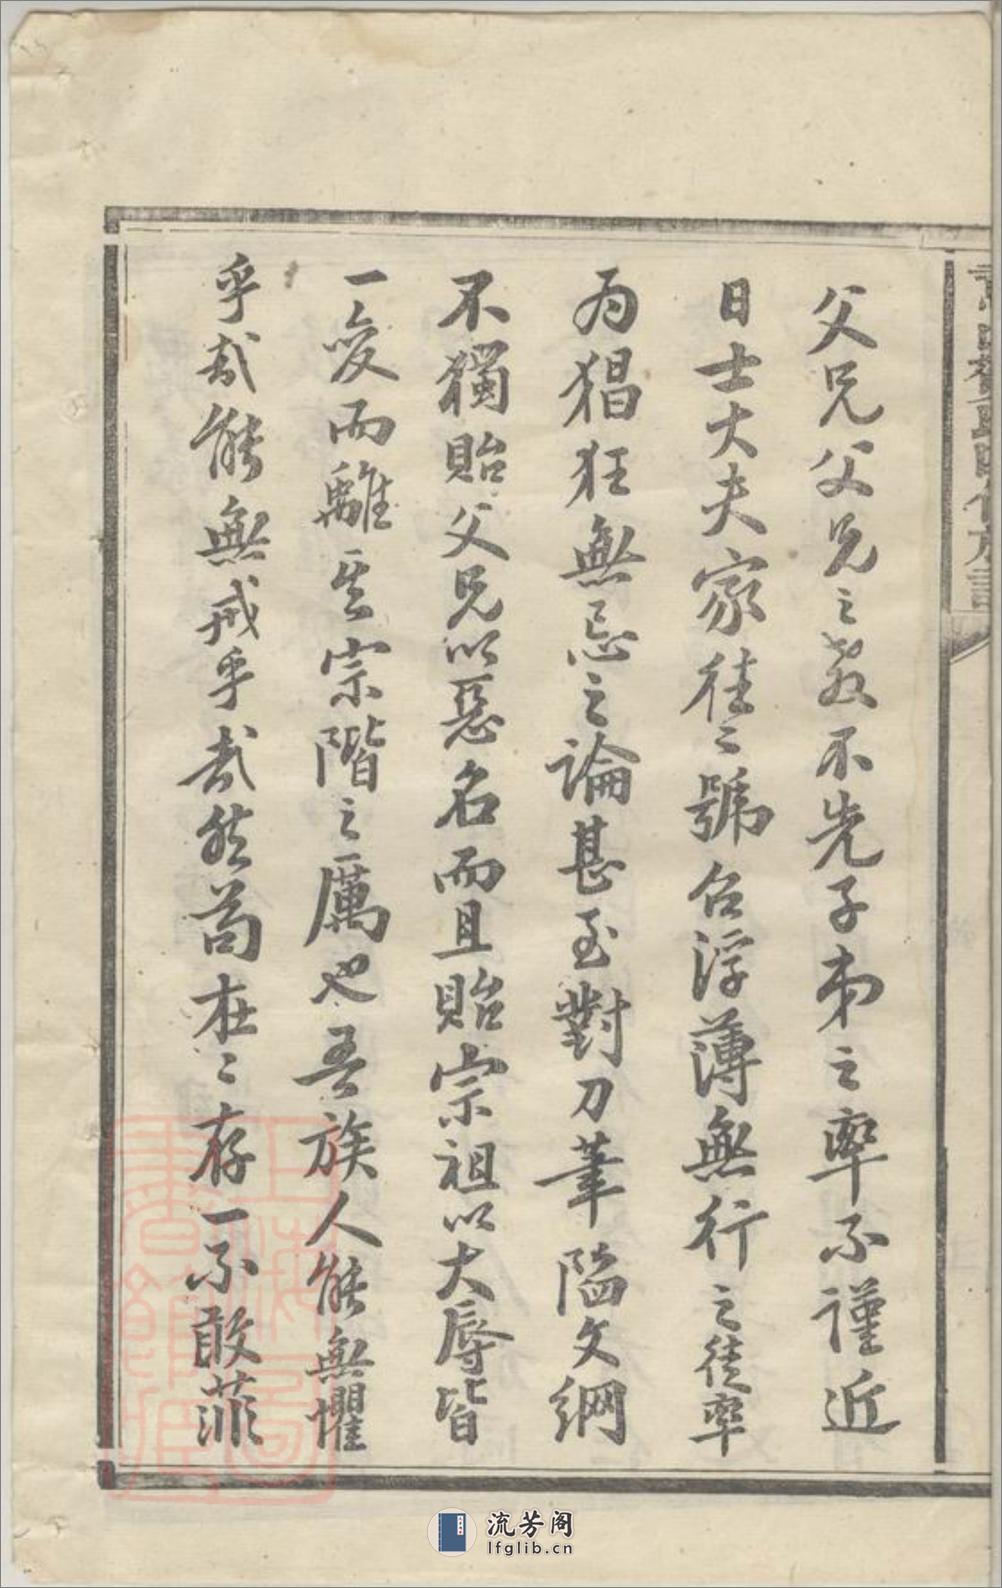 父兄父兄之教不先子弟之率不謹近
日士大夫家往〻號召浮薄無行之徒率
為猖狂無忌之論甚至對刀筆陷文網
不獨貽父兄以惡名而且貽宗祖以大辱皆
一變而離其宗階之厲也吾族人能無懼
乎哉能無戒乎哉然苟在〻存一不敢菲
流芳阁
lfglib.cn